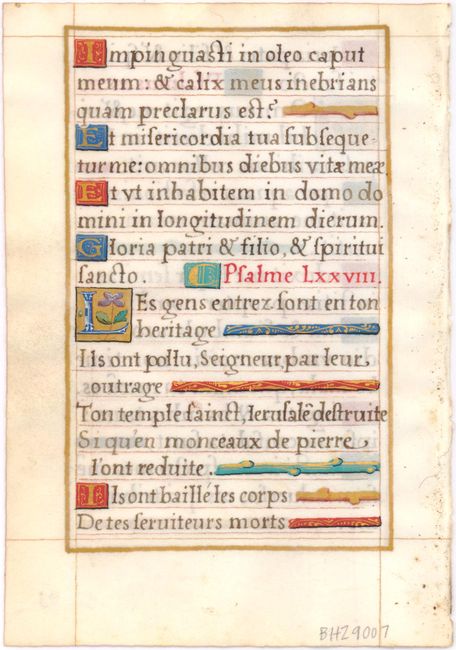 Impinguasti in oleo caput
meum: & calix meus inebrians
quam preclarus est?
Et misericordia tua subseque-
tur me: omnibus diebus vitæ meæ.
Et vt inhabitem in domo do
mini in longitudinem dierum.
Gloria patri & filio, & spiritui
sancto. Psalme LXXVIII.
Les gens entrez sont en ton
heritage
Ils ont pollu, Seigneur, par leur
outrage
Ton temple sainct, Ierusalē destruite
Si qu'en monceaux de pierre
l'ont reduite.
Ils ont baillé les corps
De tes seruiteurs morts
BHZ9007